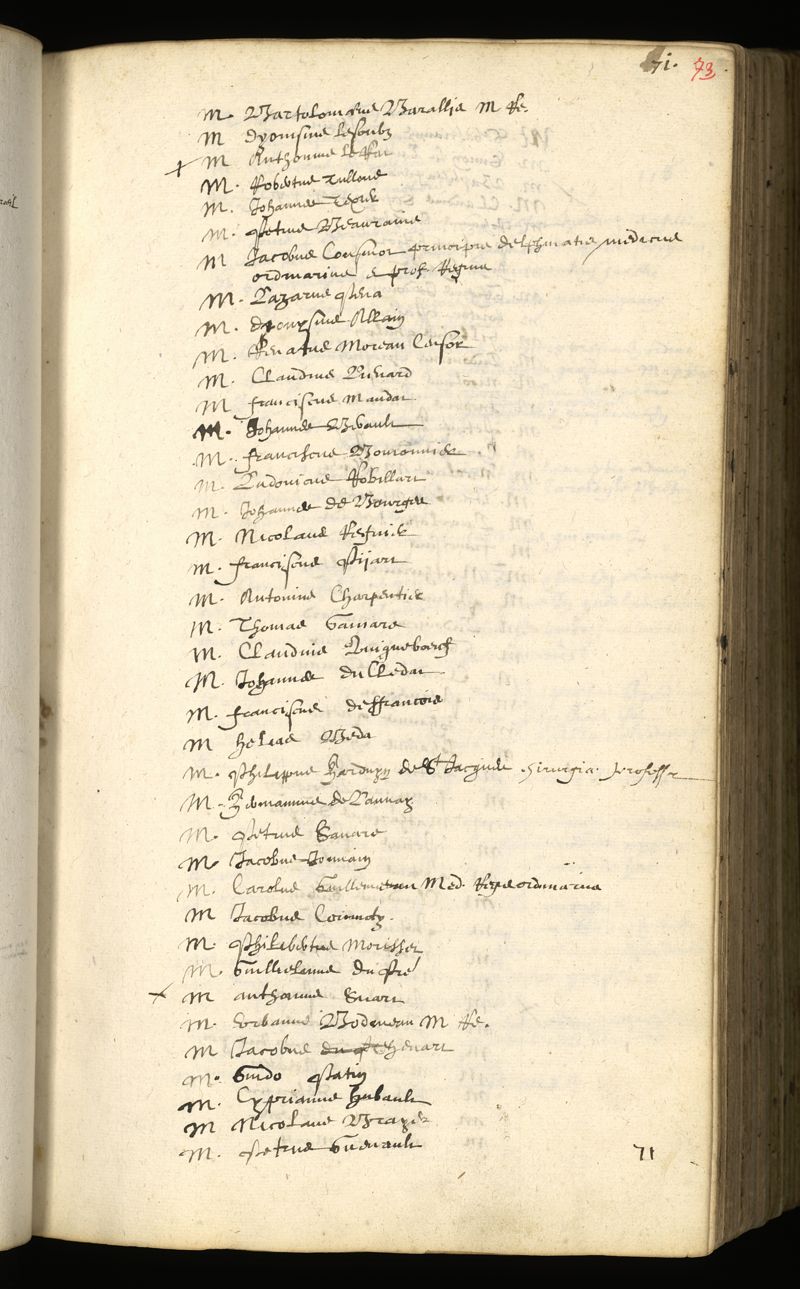 71. 73
M. Bartolomæus Barallis M Re.
M Dyonisius Lesoubz
M Anthonius Le Rat
M. Robertus Tulloue
M. Johannes Texier
M. Petrus Beauraine
M Jacobus Cousinot principis delphinatis medicus
ordinarius & prof. Regius
M. Lazarus Pena
M. Dyonysius Allain
M. Renatus Moreau Censor
M. Claudius Lienard
M franciscus Mandat
M. Johannes Bebault
M. franciscus Bouronnier
M. Ludovicus Robillart
M. Johannes de Bourges
M. Nicolaus Regnier
M. franciscus Pijart
M. Antonius Charpentier
M. Thomas Gamare
M. Claudius Quiqueboeuf
M. Johannes du Cledat
M. franciscus deffrancois
M helias Beda
M. Philippus Harduyn de St Jacques chirurgiæ professor
M. Hermannus de Launay
M. Petrus Sanare
M. Jacobus Jouvain
M. Carolus Guillemeau Med. Regis ordinarius
M Jacobus Cornuty.
M. Philibertus Morisset
M. Guillielmus du Pré
M anthonius
M. Urbanus Bodineau M Re.
M Jacobus Thevart
M. Guido Patin
M. Cyprianus Hubault
M Nicolaus Brayer
M. Petrus Guenault
71